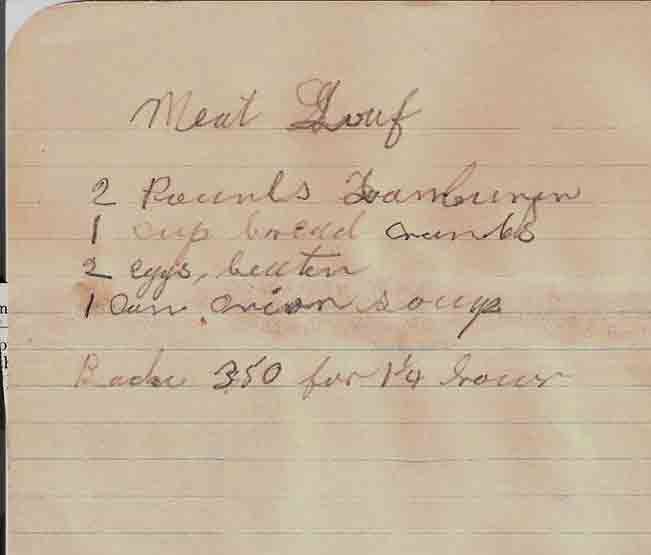 Meat Louf
2 Pounds Hamburger
1 cup bread crumbs
2 eggs, beaten
1 Can onion soup
Bake 350 for 1 1/4 hour